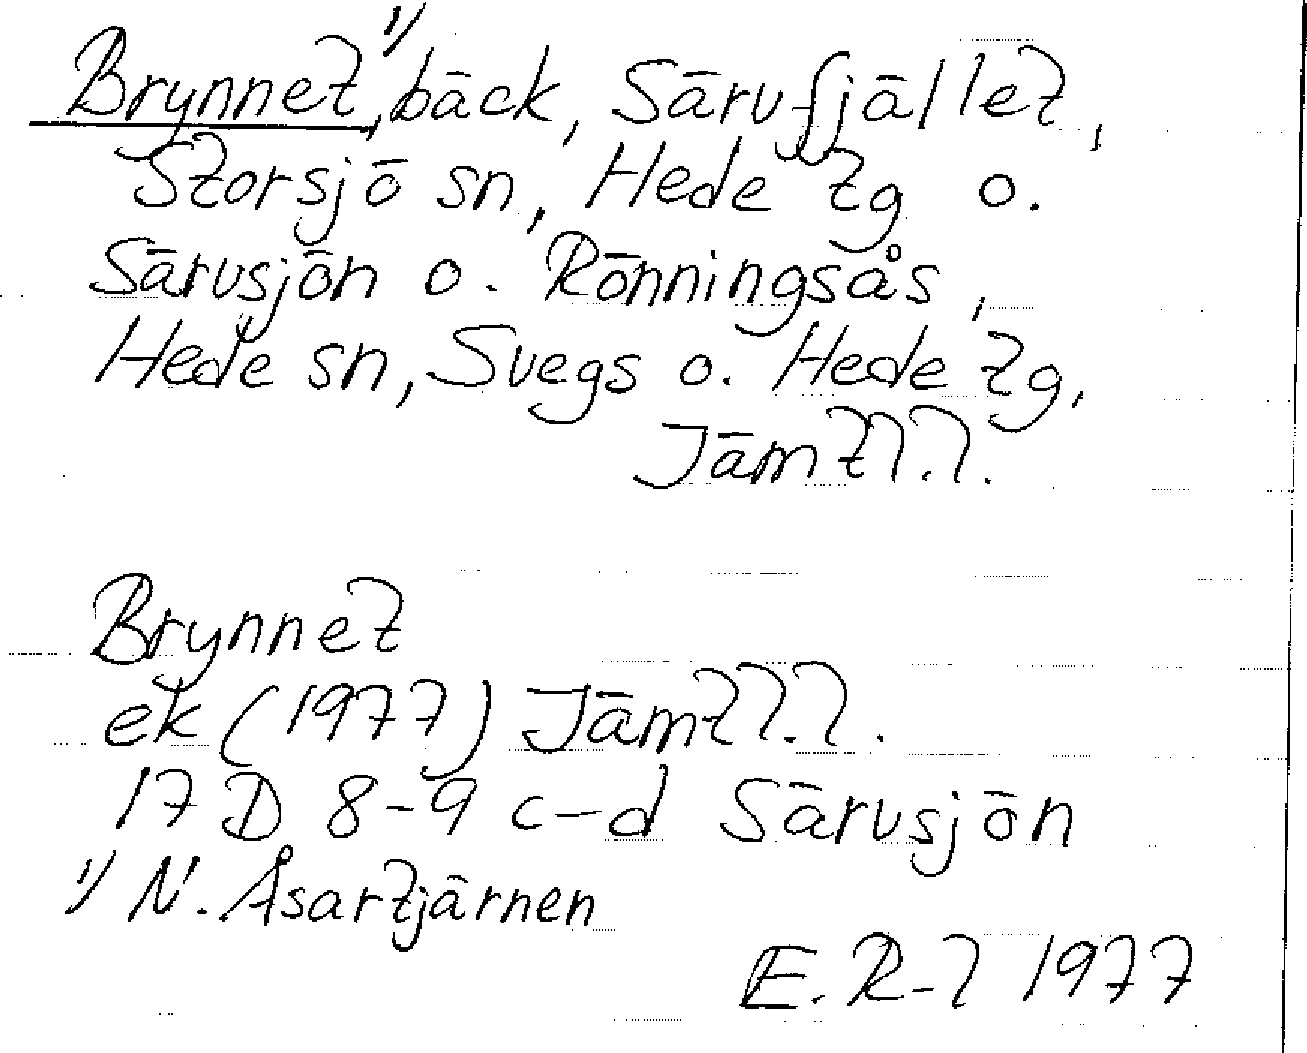 Brynnet ¹⁾, bäck, Särvfjället,
Storsjö sn, Hede tg o.
Särvsjön o. Rönningsås,
Hede sn, Svegs o. Hede tg,
Jämtl.l.
Brynnet
ek (1977) Jämtl.l.
17 D 8-9 c-d Särvsjön
¹⁾ N. Åsartjärnen
E. R-l 1977